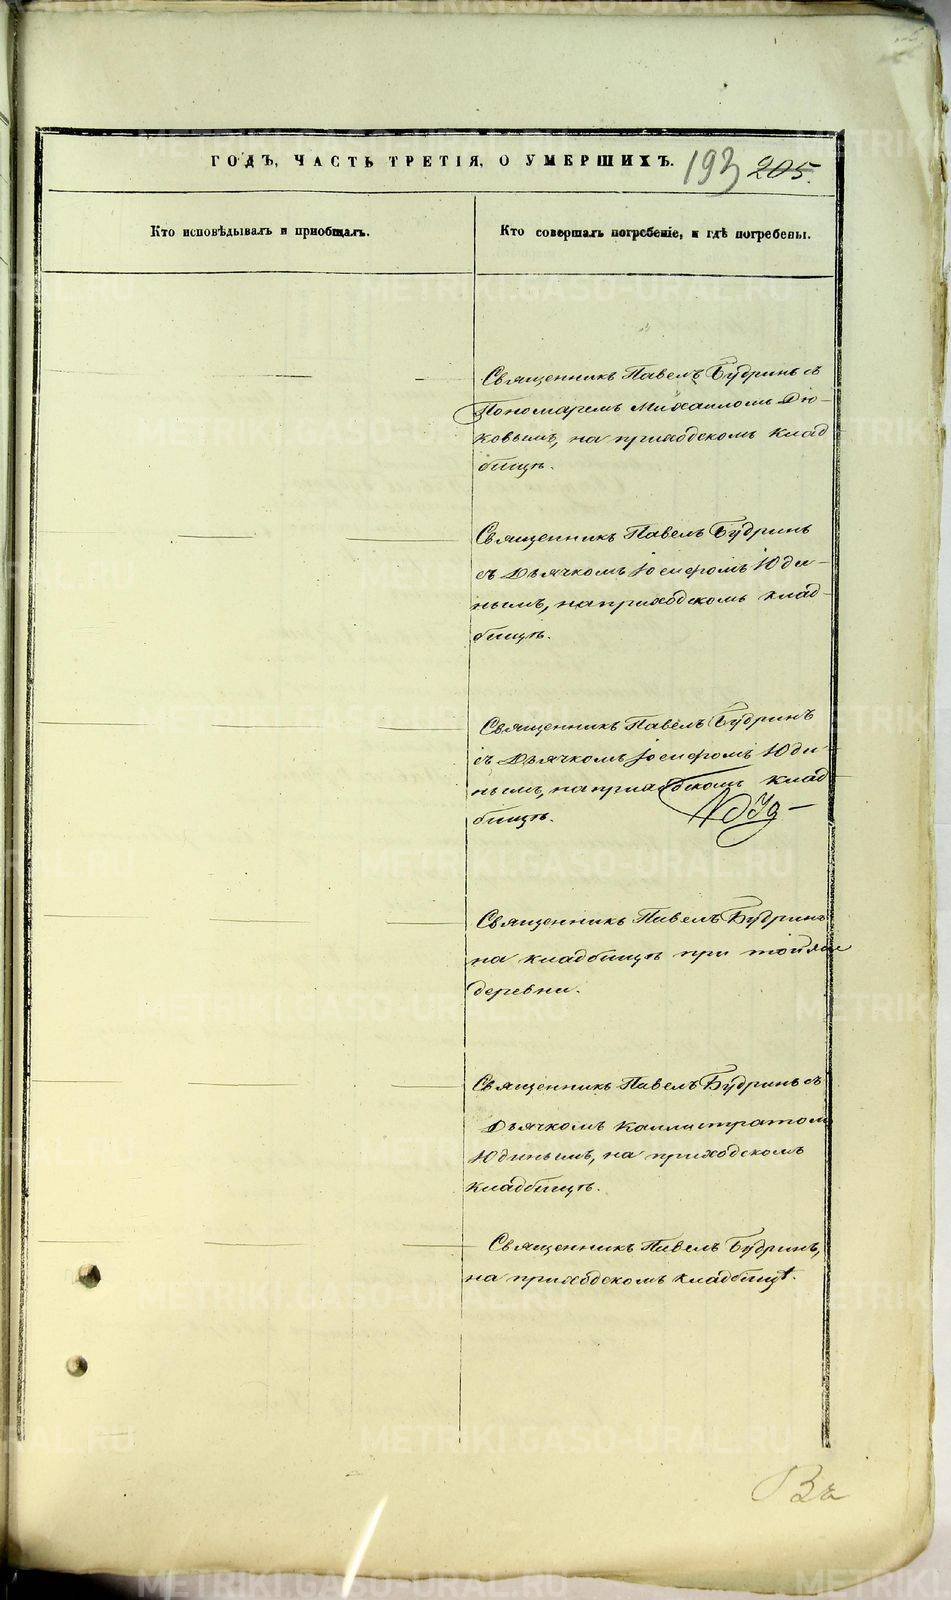 ГОДЪ, ЧАСТЬ ТРЕТІЯ, О УМЕРШИХЪ. 193 205.
Кто исповѣдывалъ и пріобщалъ.
Кто совершалъ погребеніе, и гдѣ погребены.
Священникъ Павелъ Будринъ съ
Пономаремъ Михаиломъ Дю-
ковымъ, на приходскомъ клад
бищѣ.
Священникъ Павелъ Будринъ
съ Дьячкомъ Іосифомъ Юди-
нымъ, на приходскомъ клад-
бищѣ.
Священникъ Павелъ Будринъ
съ Дьячкомъ Іосифомъ Юди-
нымъ, на приходскомъ клад
бищѣ.
Священникъ Павелъ Будринъ
на кладбищѣ при той же
деревни.
Священникъ Павелъ Будринъ съ
Дьячкомъ Каллистратомъ
Юдинымъ, на приходскомъ
кладбищѣ.
Священникъ Павелъ Будринъ,
на приходскомъ кладбищѣ.
METRIKI.GASO-URAL.RU